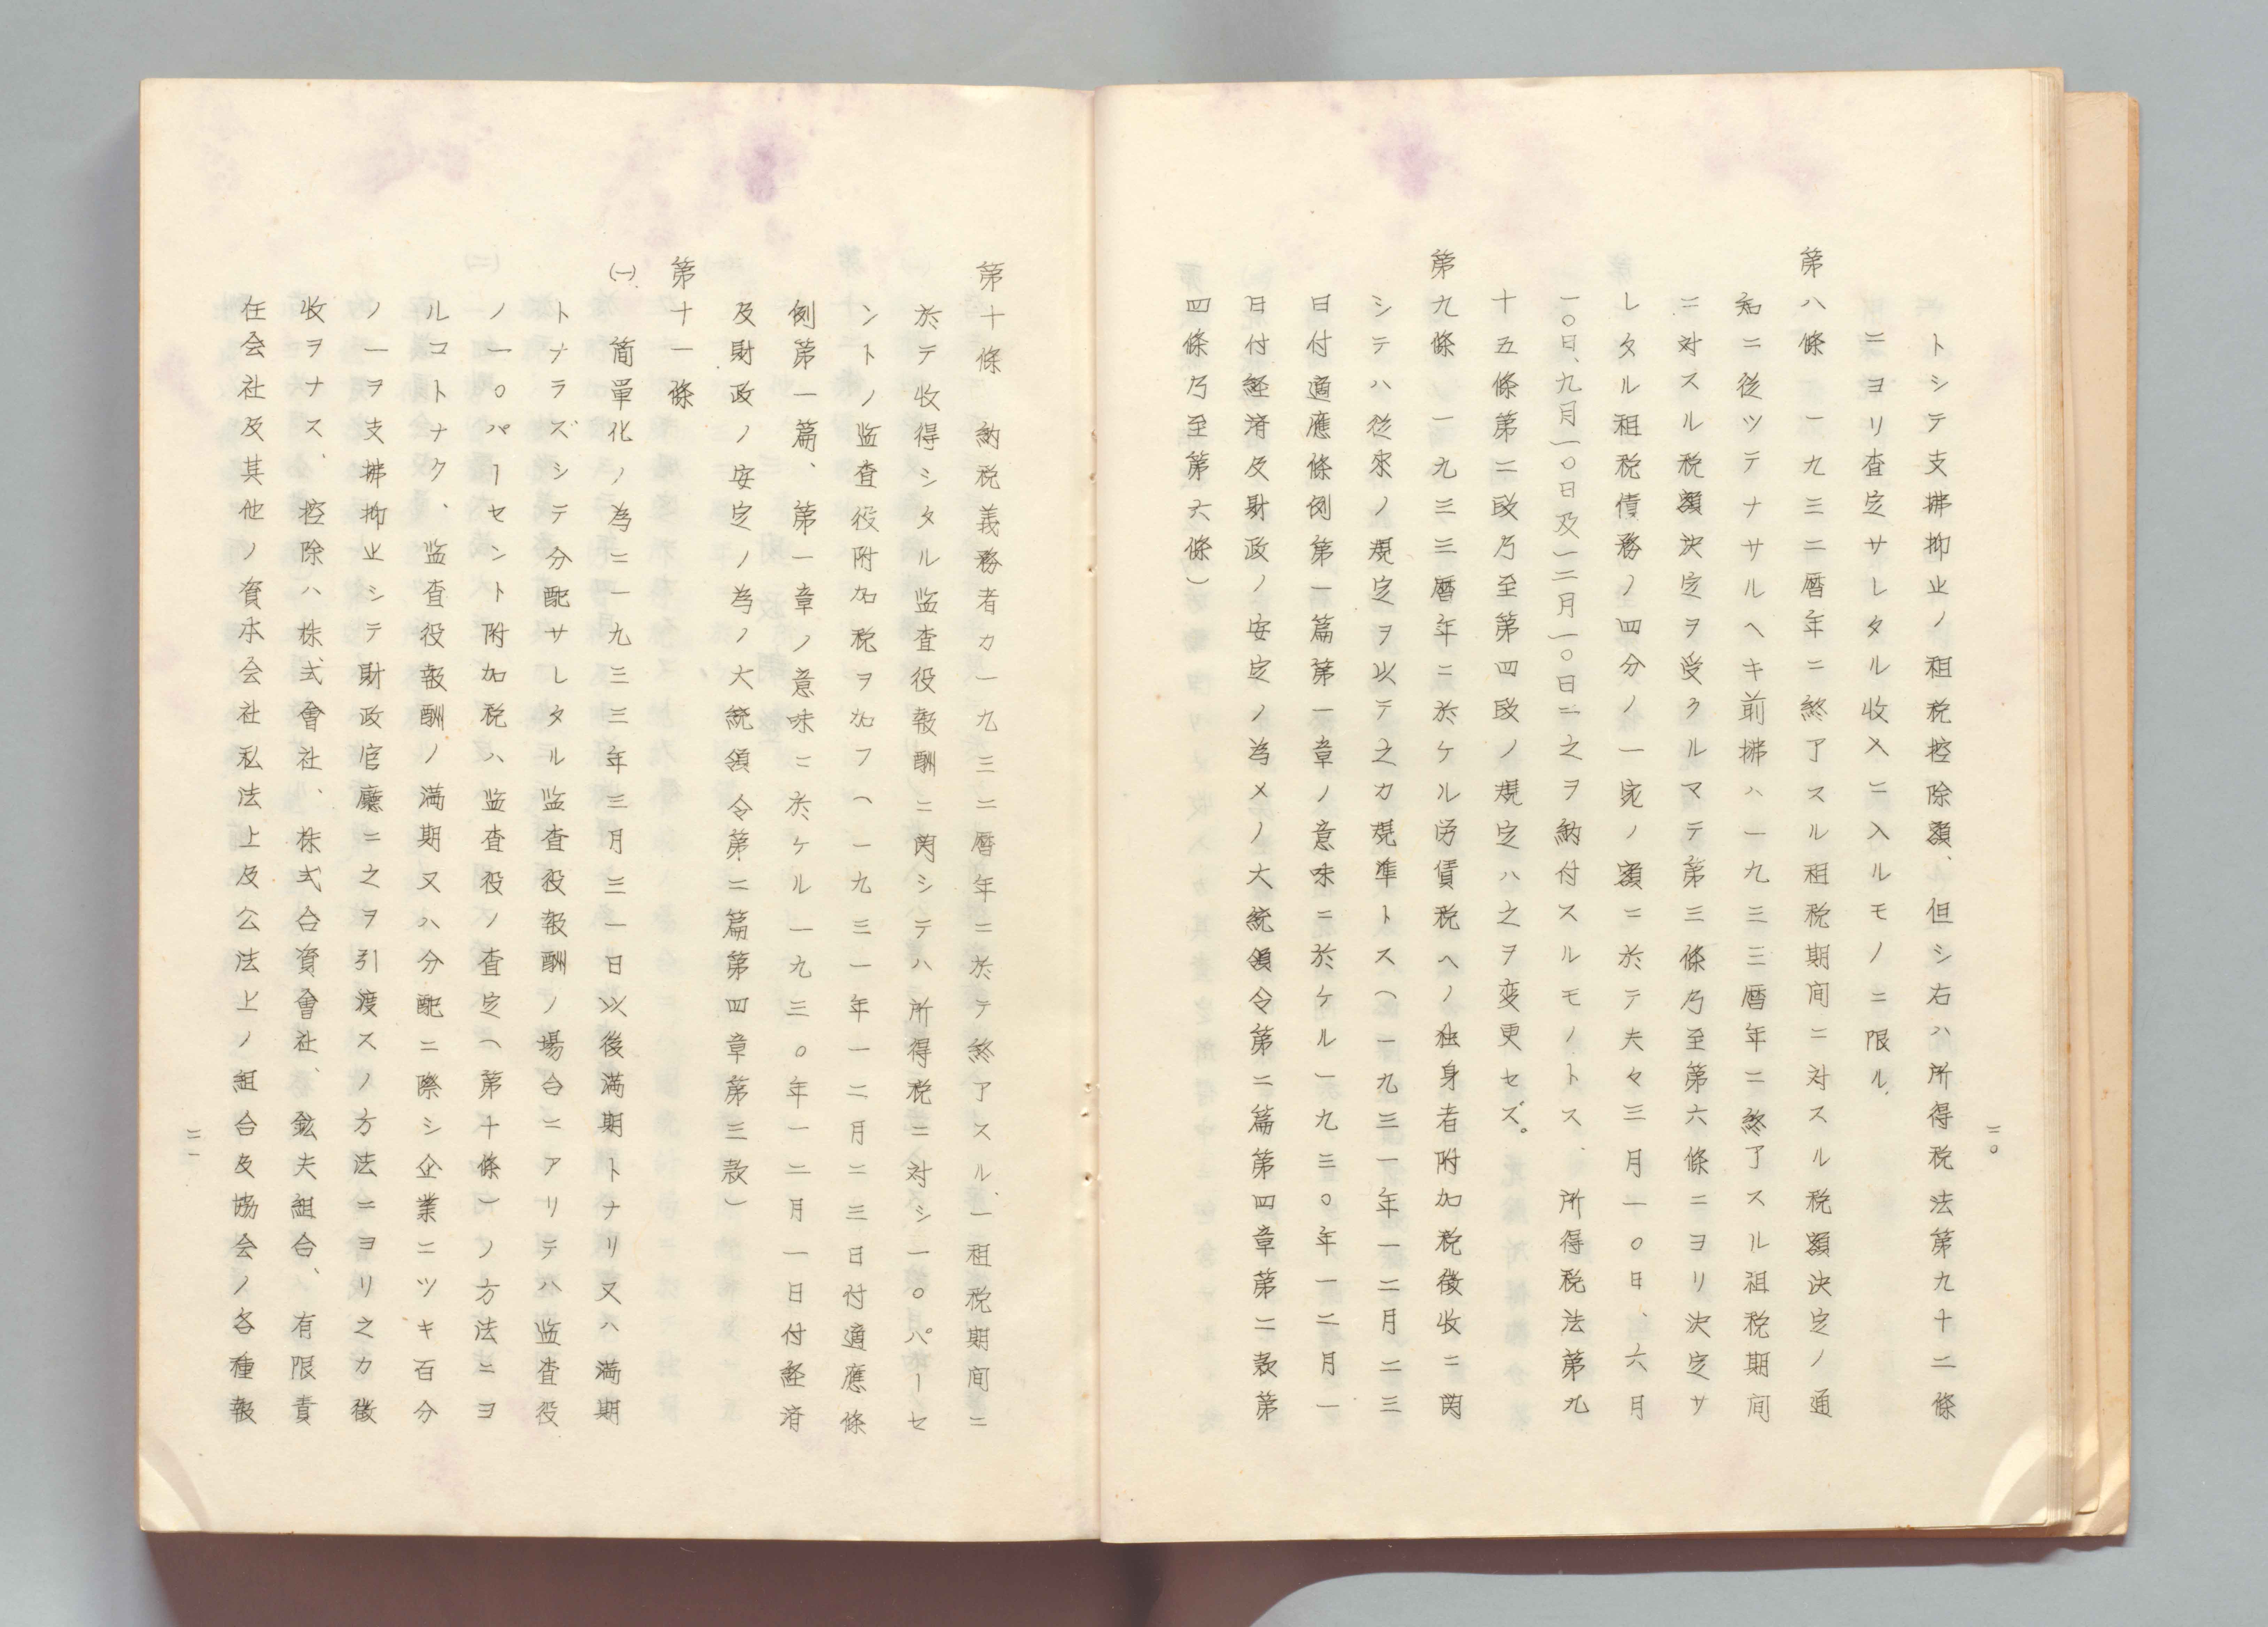 二〇
トシテ支拂抑止ノ租税控除額、但シ右ハ所得税法第九十二條
ニヨリ査定サレタル收入ニ入ルモノニ限ル、
第八條　一九三二暦年ニ終了スル租税期间ニ対スル税額決定ノ通
知ニ從ツテナサルヘキ前拂ハ一九三三暦年ニ終了スル租税期间
ニ対スル税額決定ヲ受クルマテ第三條乃至第六條ニヨリ決定サ
レタル租税債務ノ四分ノ一宛ノ額ニ於テ夫々三月一〇日、六月
一〇日、九月一〇日及一二月一〇日ニ之ヲ納付スルモノトス、所得税法第九
十五條第二段乃至第四段ノ規定ハ之ヲ変更セズ。
第九條　一九三三暦年ニ於ケル労債税ヘノ独身者附加税徴收ニ関
シテハ從來ノ規定ヲ以テ之カ規準トス（一九三一年一二月二三
日付適應條例第一篇第一章ノ意味ニ於ケル一九三〇年一二月一
日付経済及財政ノ安定ノ為メノ大統領令第二篇第四章第二款第
四條乃至第六條）
第十條　納税義務者カ一九三二暦年ニ於テ終了スル、一租税期间ニ
於テ收得シタル监査役報酬ニ関シテハ所得税ニ対シ一〇パーセ
ントノ监査役附加税ヲ加フ（一九三一年一二月二三日付適應條
例第一篇、第一章ノ意味ニ於ケル一九三〇年一二月一日付経済
及財政ノ安定ノ為ノ大統領令第二篇第四章第三款）
第十一條
㈠　简單化ノ為ニ一九三三年三月三一日以後満期トナリ又ハ満期
トナラズシテ分配サレタル监査役報酬ノ場合ニアリテハ监査役
ノ一〇パーセント附加税ハ监査役ノ査定（第十條）ノ方法ニヨ
ルコトナク、监査役報酬ノ満期又ハ分配ニ際シ企業ニツキ百分
ノ一ヲ支拂抑止シテ財政官廳ニ之ヲ引渡スノ方法ニヨリ之カ徴
收ヲナス、控除ハ株式會社、株式合資會社、鉱夫組合、有限責
任会社及其他ノ資本会社私法上及公法上ノ組合及協会ノ各種報
二一